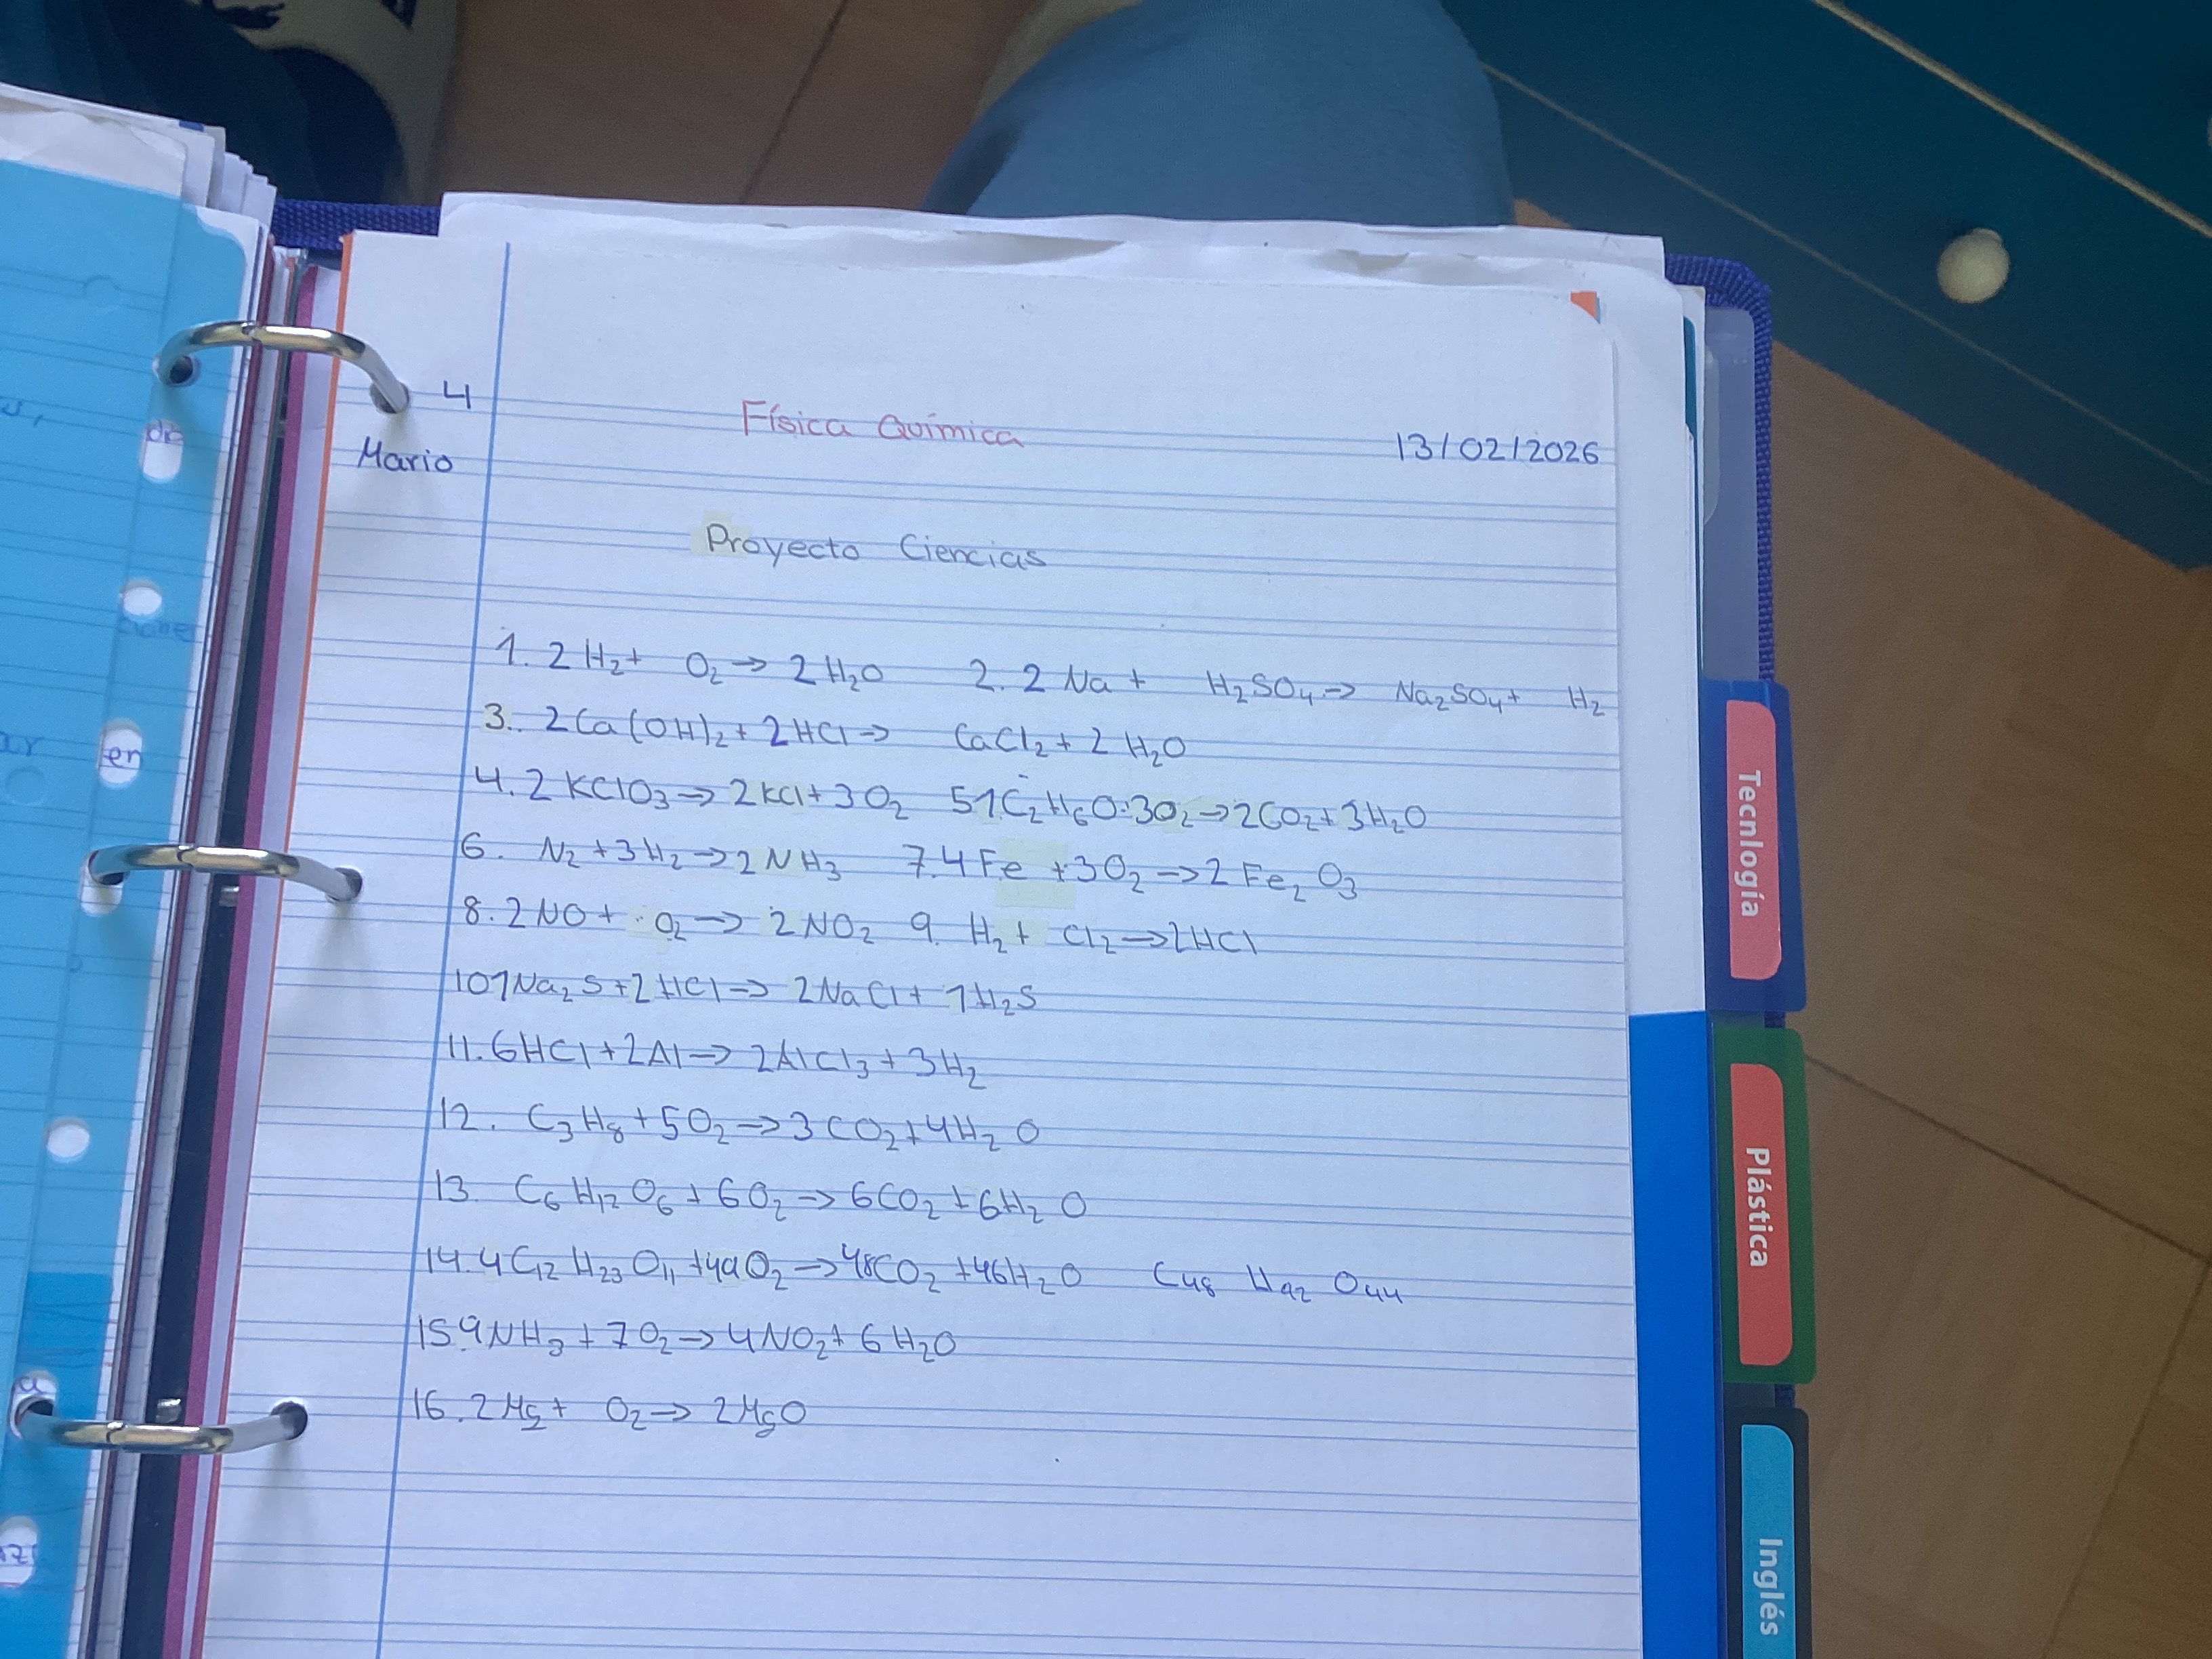 4
Física Química
13/02/2026
Mario
Proyecto Ciencias
1. 2 H₂+ O₂ → 2 H₂O 2. 2 Na + H₂SO₄ → Na₂SO₄+ H₂
3. 2Ca(OH)₂ + 2HCl → CaCl₂ + 2 H₂O
4. 2 KClO₃ → 2KCl + 3O₂ 5 1C₂H₆O·3O₂ → 2CO₂ + 3H₂O
6. N₂ + 3H₂ → 2NH₃ 7. 4Fe + 3O₂ → 2Fe₂O₃
8. 2NO + O₂ → 2NO₂ 9. H₂ + Cl₂ → 2HCl
10 1Na₂S+2HCl → 2NaCl + 1H₂S
11. 6HCl+2Al → 2AlCl₃ + 3H₂
12. C₃H₈ + 5O₂ → 3CO₂ + 4H₂O
13. C₆H₁₂O₆ + 6O₂ → 6CO₂ + 6H₂O
14. 4C₁₂H₂₃O₁₁ + 49O₂ → 48CO₂ + 46H₂O C₄₈ H₉₂ O₄₄
15. 9NH₃ + 7O₂ → 4NO₂ + 6H₂O
16. 2Mg + O₂ → 2MgO
die
en
ar
a
Tecnlogía
Plástica
Inglés